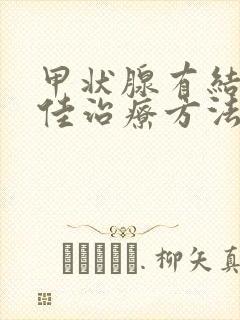 甲状腺有結
佳治療方法
柳矢真